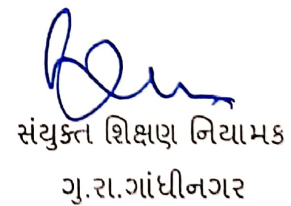 સંયુક્ત શિક્ષણ નિયામક
ગુ.રા.ગાંધીનગર